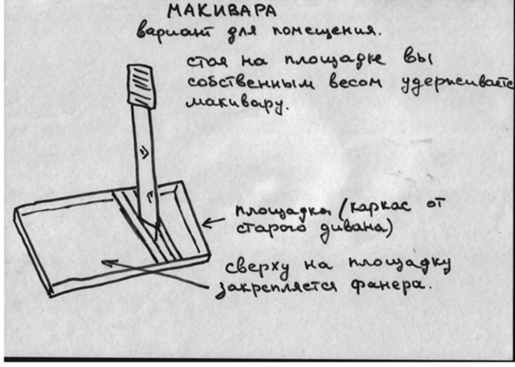 МАКИВАРА
вариант для помещения.
стоя на площадке вы
собственным весом удерживаете
макивару.
площадка (каркас от
старого дивана)
сверху на площадку
закрепляется фанера.